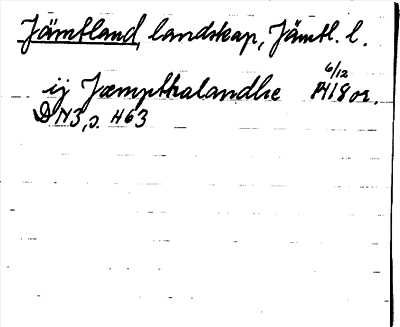 Jämtland, landskap, Jämtl. l.
ij Jæmpthalandhe 6/12 1418 or.
DN3, s. 463